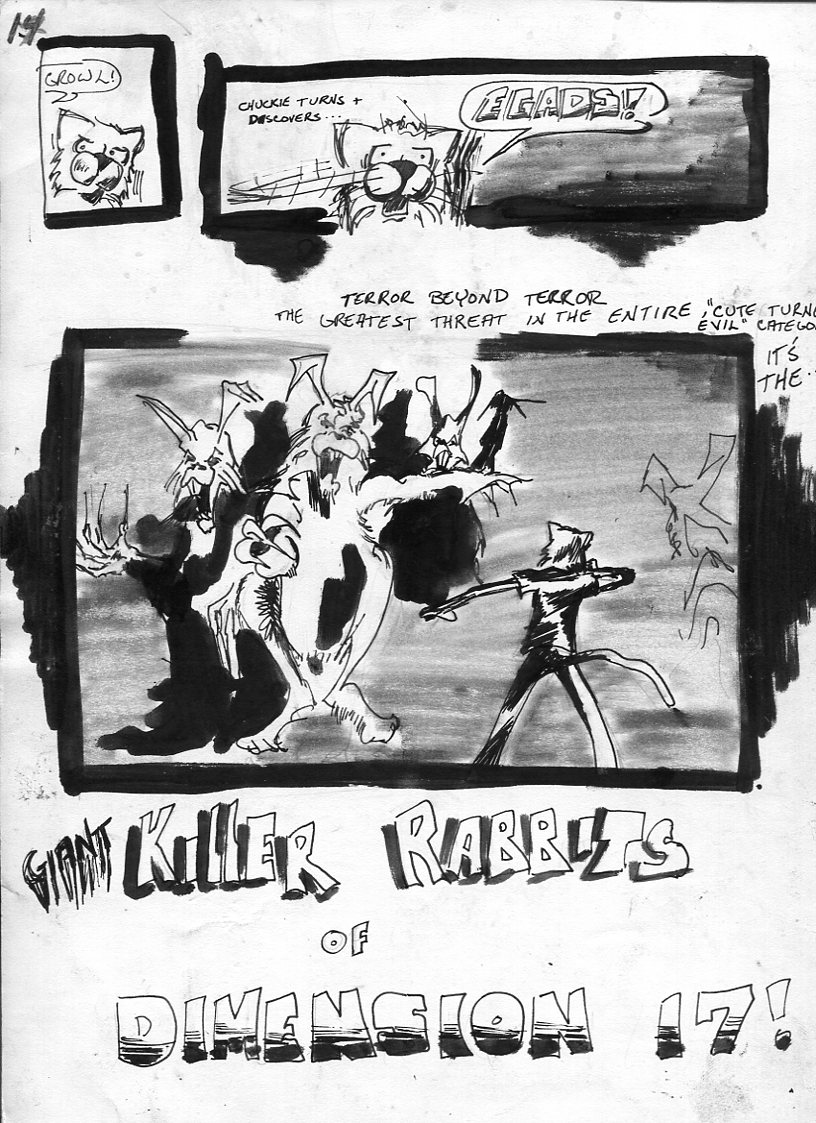 GROWL!
CHUCKIE TURNS +
DISCOVERS...
EGADS!
TERROR BEYOND TERROR
THE GREATEST THREAT IN THE ENTIRE "CUTE TURNE
EVIL" CATEGO
IT'S
THE...
GIANT KILLER RABBITS
OF
DIMENSION 17!